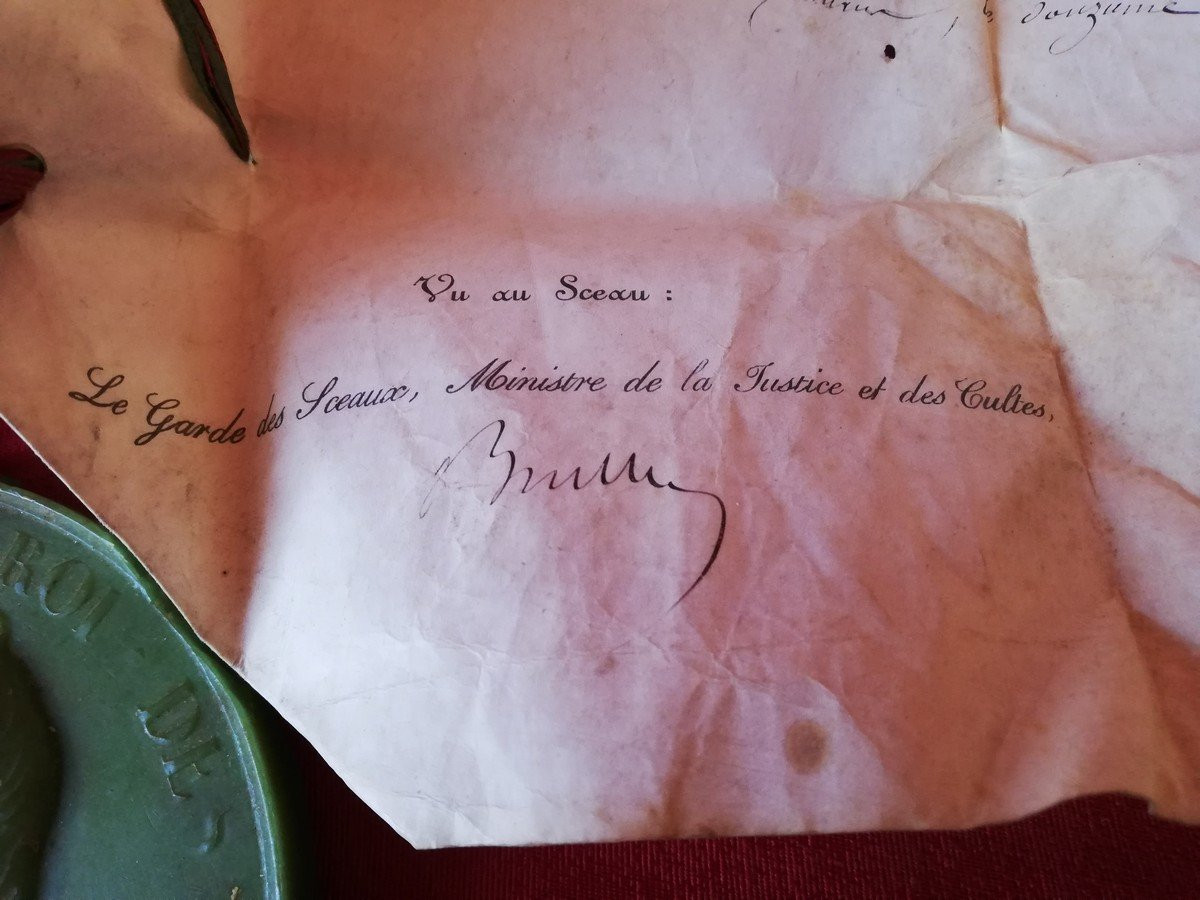 douzième
Vu au Sceau :
Le Garde des Sceaux, Ministre de la Justice et des Cultes,
ROI DES